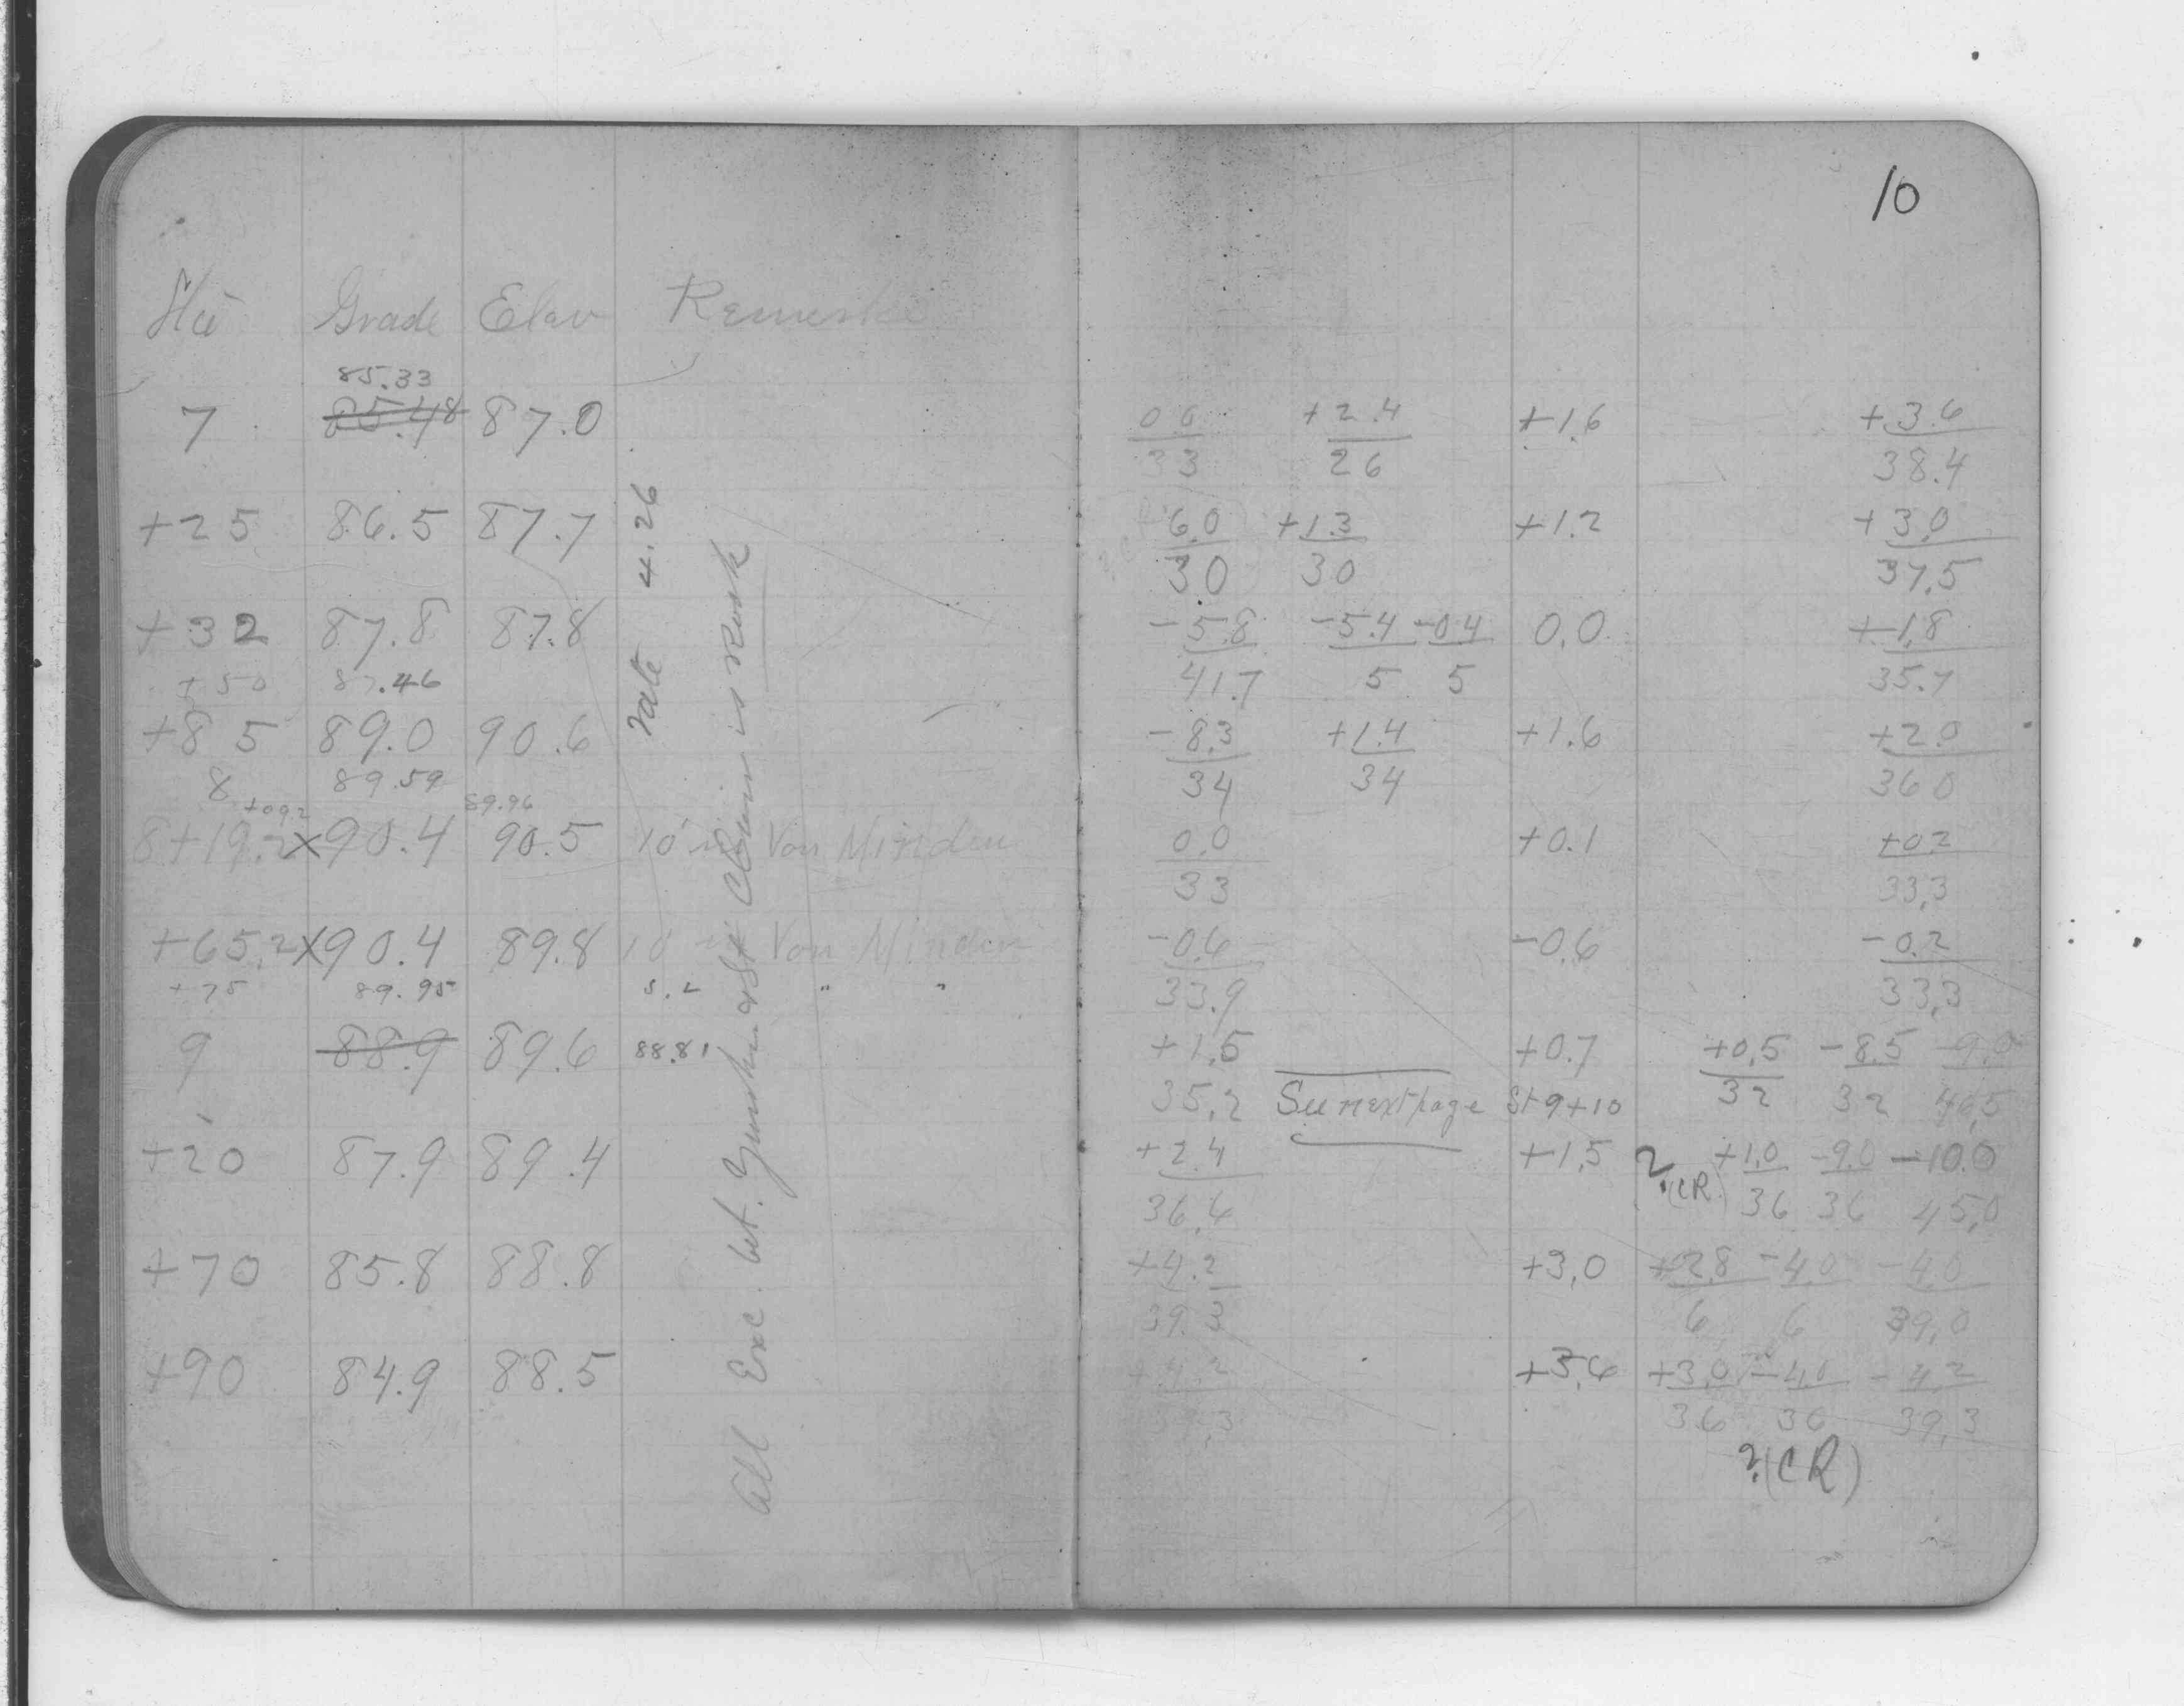 10
Sta Grade Elev Remarks
85.33
7 85.48 87.0 +2.4 +1.6 +3.6
33 26 38.4
+25 86.5 87.7 6.0 +1.3 +1.2 +3.0
30 30 37.5
+32 87.8 87.8 -5.8 -5.4 -0.4 0.0 +1.8
41.7 5 5 35.7
+50 87.46
+85 89.0 90.6 -8.3 +1.4 +1.6 +2.0
34 34 36.0
8 89.59
+09.2 89.96
8+19.2 x 90.4 90.5 10' Von Minden 0.0 +0.1 +0.2
33 33.3
+65.2 x 90.4 89.8 10 Von Minden -0.6 -0.6 -0.2
33.9 33.3
+75 89.95 5.2 " "
9 88.9 89.6 88.81 +1.5 +0.7 +0.5 -8.5 -9.0
35.2 See next page St 9+10 32 32 40.5
+20 87.9 89.4 +2.4 +1.5 ?(CR) +1.0 -9.0 -10.0
36.6 36 36 45.0
+70 85.8 88.8 +4.2 +3.0 +2.8 -4.0 -4.0
39.3 6 6 39.0
+90 84.9 88.5 +4.2 +3.6 +3.0 -4.0 -4.2
39.3 36 36 39.3
?(CR)
rate 4.26
All Exc. bet. &